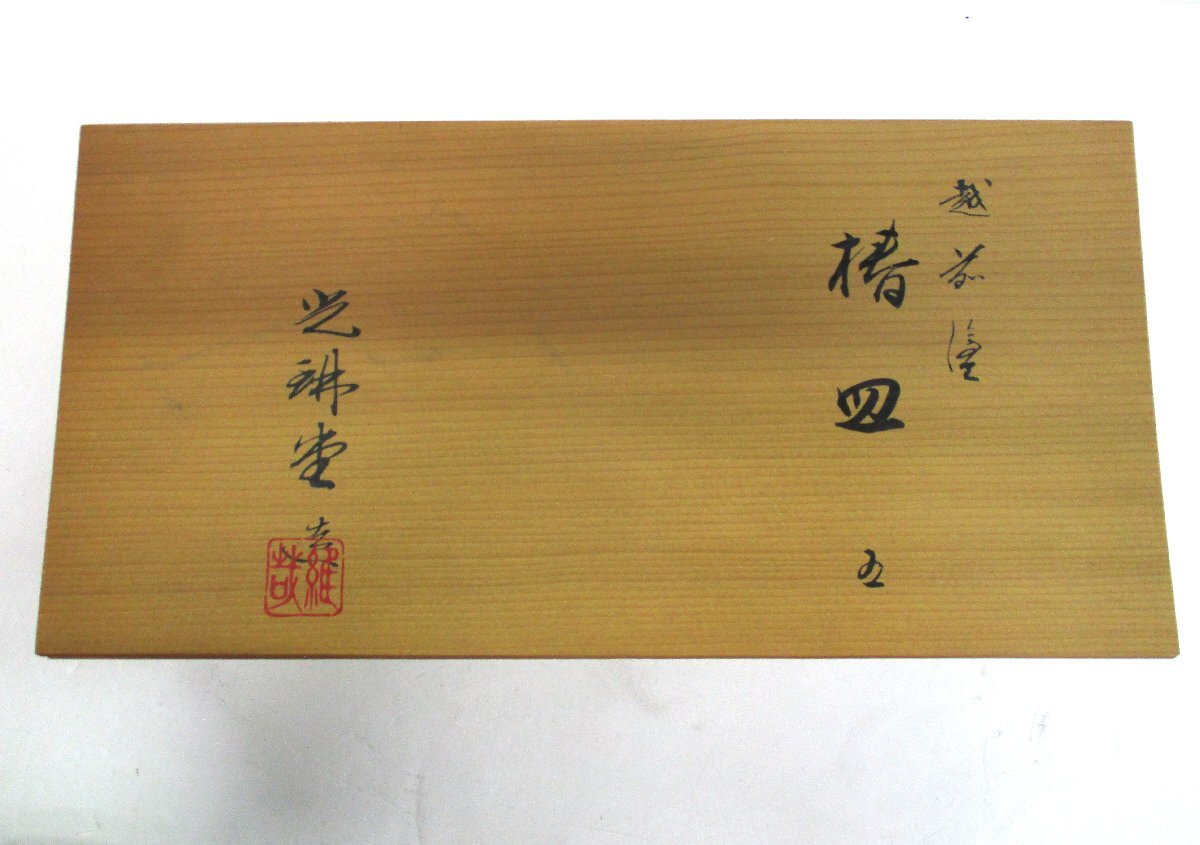 越前塗
椿皿 五
光琳堂
雄哉